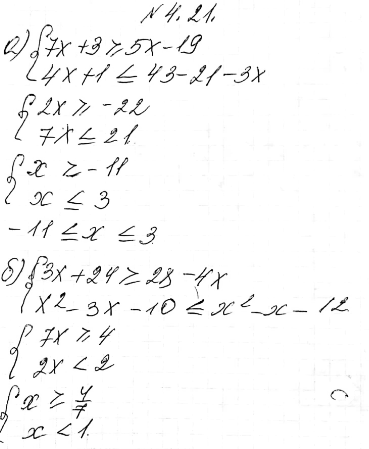 № 4.21.
а) { 7x + 3 ≥ 5x - 19
4x + 1 ≤ 43 - 21 - 3x
{ 2x ≥ -22
7x ≤ 21
{ x ≥ -11
x ≤ 3
-11 ≤ x ≤ 3
б) { 3x + 24 ≥ 28 - 4x
x² - 3x - 10 ≤ x² - x - 12
{ 7x ≥ 4
2x < 2
{ x ≥ 4/7
x < 1.